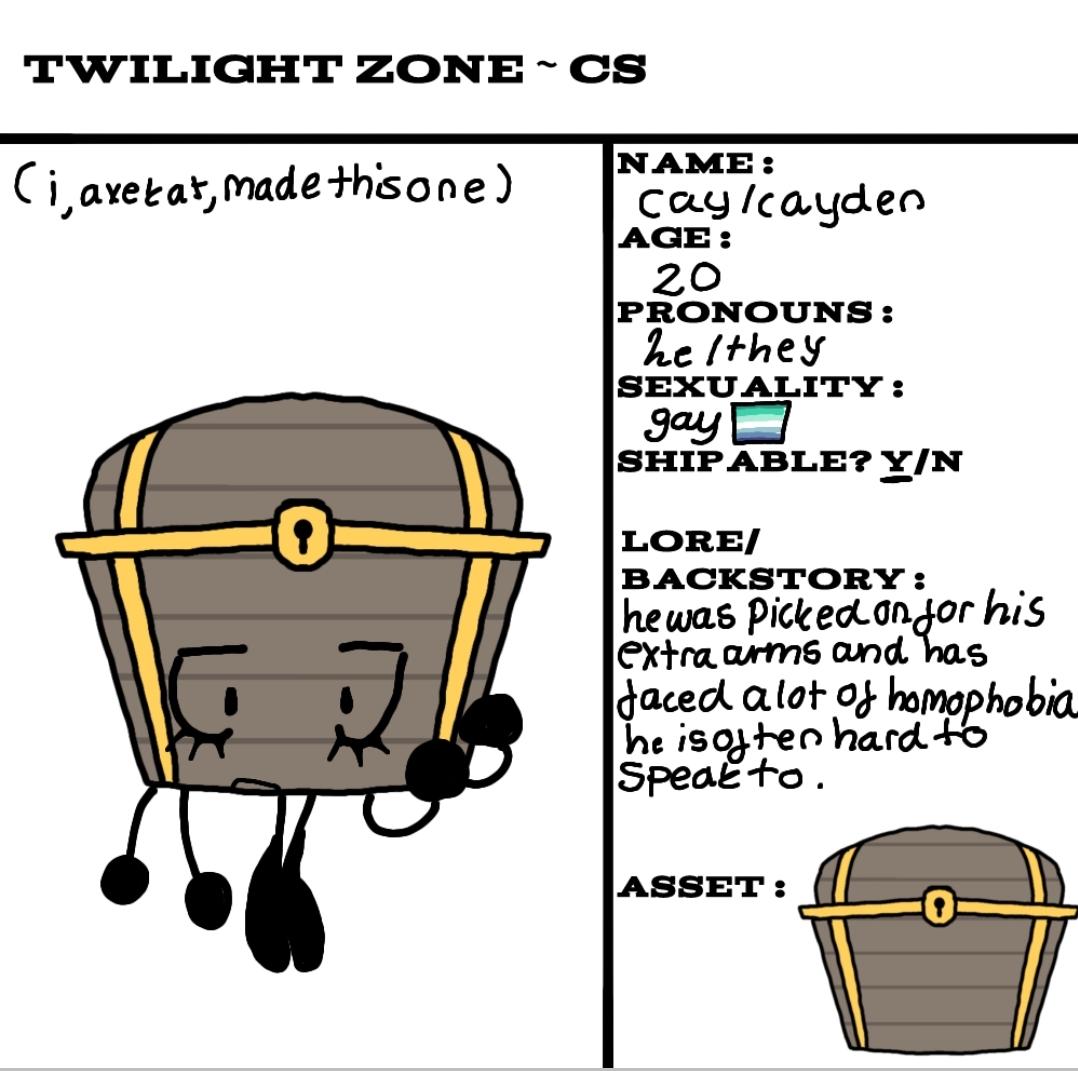 TWILIGHT ZONE ~ CS
(i, axekat, made this one)
NAME:
cay/cayden
AGE:
20
PRONOUNS:
he/they
SEXUALITY:
gay
SHIPABLE? Y/N
LORE/
BACKSTORY:
he was picked on for his
extra arms and has
faced a lot of homophobia
he is often hard to
speak to.
ASSET: